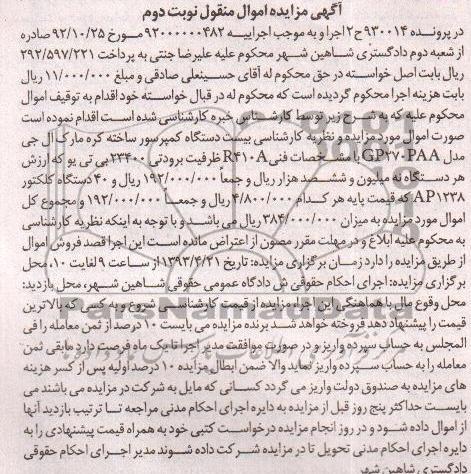 آگهی مزایده اموال منقول نوبت دوم
در پرونده ۹۳۰۰۱۴ ح۲ اجرا و به موجب اجراییه ۹۲۰۰۰۰۰۰۴۸۲ مورخ ۹۲/۱۰/۲۵ صادره
از شعبه دوم دادگستری شاهین شهر محکوم علیه علیرضا جنتی به پرداخت ۲۹۲/۵۹۷/۲۲۱
ریال بابت اصل خواسته در حق محکوم له آقای حسینعلی صادقی و مبلغ ۱۱/۰۰۰/۰۰۰ ریال
بابت هزینه اجرا محکوم گردیده است که محکوم له در قبال خواسته خود اقدام به توقیف اموال
محکوم علیه که به شرح زیر توسط کارشناس خبره کارشناسی شده است اقدام نموده است
صورت اموال مورد مزایده و نظریه کارشناسی بیست دستگاه کمپرسور ساخته کره مارک ال جی
مدل GP۲۷۰PAA با مشخصات فنی R۴۱۰A ظرفیت برودتی ۲۳۴۰۰ بی تی یو که ارزش
هر دستگاه نه میلیون و ششصد هزار ریال و جمعاً ۱۹۲/۰۰۰/۰۰۰ ریال و ۴۰ دستگاه کلکتور
AP۱۲۳۸ که قیمت پایه هر کدام ۴/۸۰۰/۰۰۰ ریال و جمعا ۱۹۲/۰۰۰/۰۰۰ و مجموع کل
اموال مورد مزایده به میزان ۳۸۴/۰۰۰/۰۰۰ ریال می باشد و با توجه به اینکه نظریه کارشناسی
به محکوم علیه ابلاغ و در مهلت مقرر مصون از اعتراض مانده است این اجرا قصد فروش اموال
از طریق مزایده را دارد زمان برگزاری مزایده: تاریخ ۱۳۹۳/۴/۳۱ از ساعت ۹ لغایت ۱۰ محل
برگزاری مزایده: اجرای احکام حقوقی ش دادگاه عمومی حقوقی شاهین شهر، محل بازدید:
محل وقوع مال با هماهنگی این اجرا، مزایده از قیمت کارشناسی شروع و به کسی که بالاترین
قیمت را پیشنهاد دهد فروخته خواهد شد برنده مزایده می بایست ۱۰ درصد از ثمن معامله را فی
المجلس به حساب سپرده واریز و در صورت موافقت مدیر اجرا تا یک ماه فرصت دارد مابقی ثمن
معامله را به حساب سپرده واریز نماید والا ضمن ابطال مزایده ۱۰ درصد اولیه پس از کسر هزینه
های مزایده به صندوق دولت واریز می گردد کسانی که مایل به شرکت در مزایده می باشند می
بایست حداکثر پنج روز قبل از مزایده به دایره اجرای احکام مدنی مراجعه تا ترتیب بازدید آنها
از اموال داده شود و در روز انجام مزایده درخواست کتبی خود به همراه قیمت پیشنهادی را به
دایره اجرای احکام مدنی تحویل تا در مزایده شرکت داده شوند مدیر اجرای احکام حقوقی
دادگستری شاهین شهر
ParsNamadData